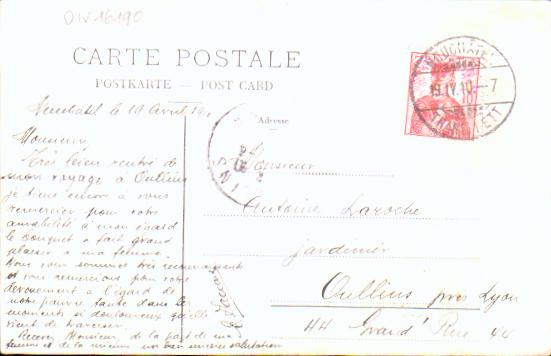 DIV 16190
CARTE POSTALE
POSTKARTE — POST CARD
Neuchatel le 19 Avril 1910
Adresse
NEUCHÂTEL
19.IV.10.–7
Monsieur,
Très bien rentré de
mon voyage à Oullins
je tiens encore à vous
remercier pour votre
amabilité à mon égard
le bouquet a fait grand
plaisir à ma femme.
Nous vous sommes très reconnaissants
et vous remercions pour votre
dévouement à l'égard de
notre pauvre tante dans les
moments si douloureux qu'elle
vient de traverser.
Recevez Monsieur, de la part de ma
femme et de la mienne nos bien sincères salutations
Monsieur
Antoine Laroche
jardinier
Oullins près Lyon
44 Grand' Rue 44